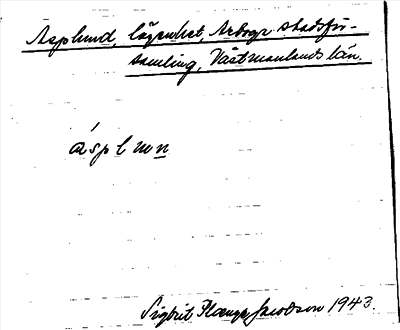 Asplund, lägenhet, Arboga stadsför-
samling, Västmanlands län.
áspl mn
Sigbrit Plænge Jacobson 1943.